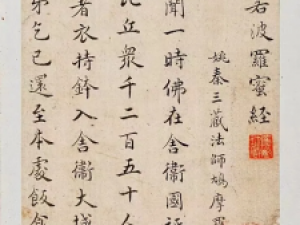 若波羅蜜經
姚秦三藏法師鳩摩羅
聞一時佛在舍衛國祇
比丘衆千二百五十人
著衣持鉢入舍衛大城
第乞已還至本處飯食